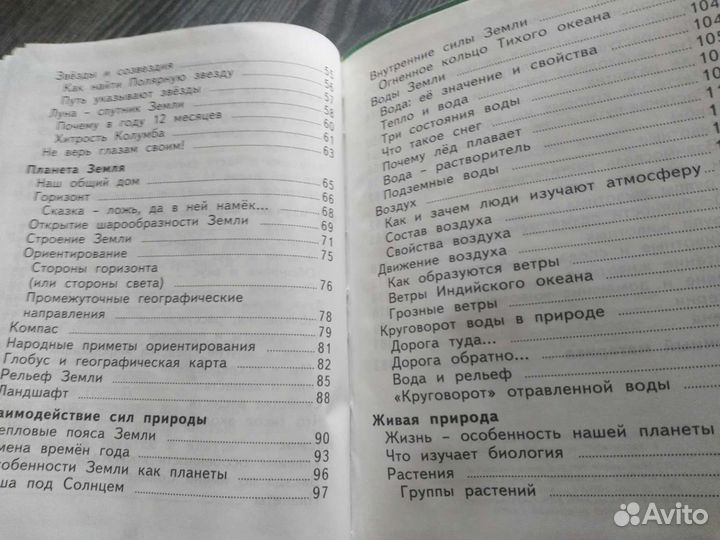 Звёзды и созвездия 55
Как найти Полярную звезду 56
Путь указывают звёзды 57
Луна – спутник Земли 58
Почему в году 12 месяцев 60
Хитрость Колумба 61
Не верь глазам своим! 63
Планета Земля
Наш общий дом 65
Горизонт 66
Сказка – ложь, да в ней намёк... 68
Открытие шарообразности Земли 69
Строение Земли 71
Ориентирование 75
Стороны горизонта
(или стороны света) 76
Промежуточные географические
направления 78
Компас 79
Народные приметы ориентирования 81
Глобус и географическая карта 82
Рельеф Земли 85
Ландшафт 88
аимодействие сил природы
епловые пояса Земли 90
мена времён года 93
собенности Земли как планеты 96
ша под Солнцем 97
Внутренние силы Земли
Огненное кольцо Тихого океана 104
Воды Земли 104
Вода: её значение и свойства 105
Тепло и вода
Три состояния воды
Что такое снег
Почему лёд плавает
Вода – растворитель
Подземные воды
Воздух
Как и зачем люди изучают атмосферу
Состав воздуха
Свойства воздуха
Движение воздуха
Как образуются ветры
Ветры Индийского океана
Грозные ветры
Круговорот воды в природе
Дорога туда...
Дорога обратно...
Вода и рельеф
«Круговорот» отравленной воды
Живая природа
Жизнь – особенность нашей планеты
Что изучает биология
Растения
Группы растений
Avito